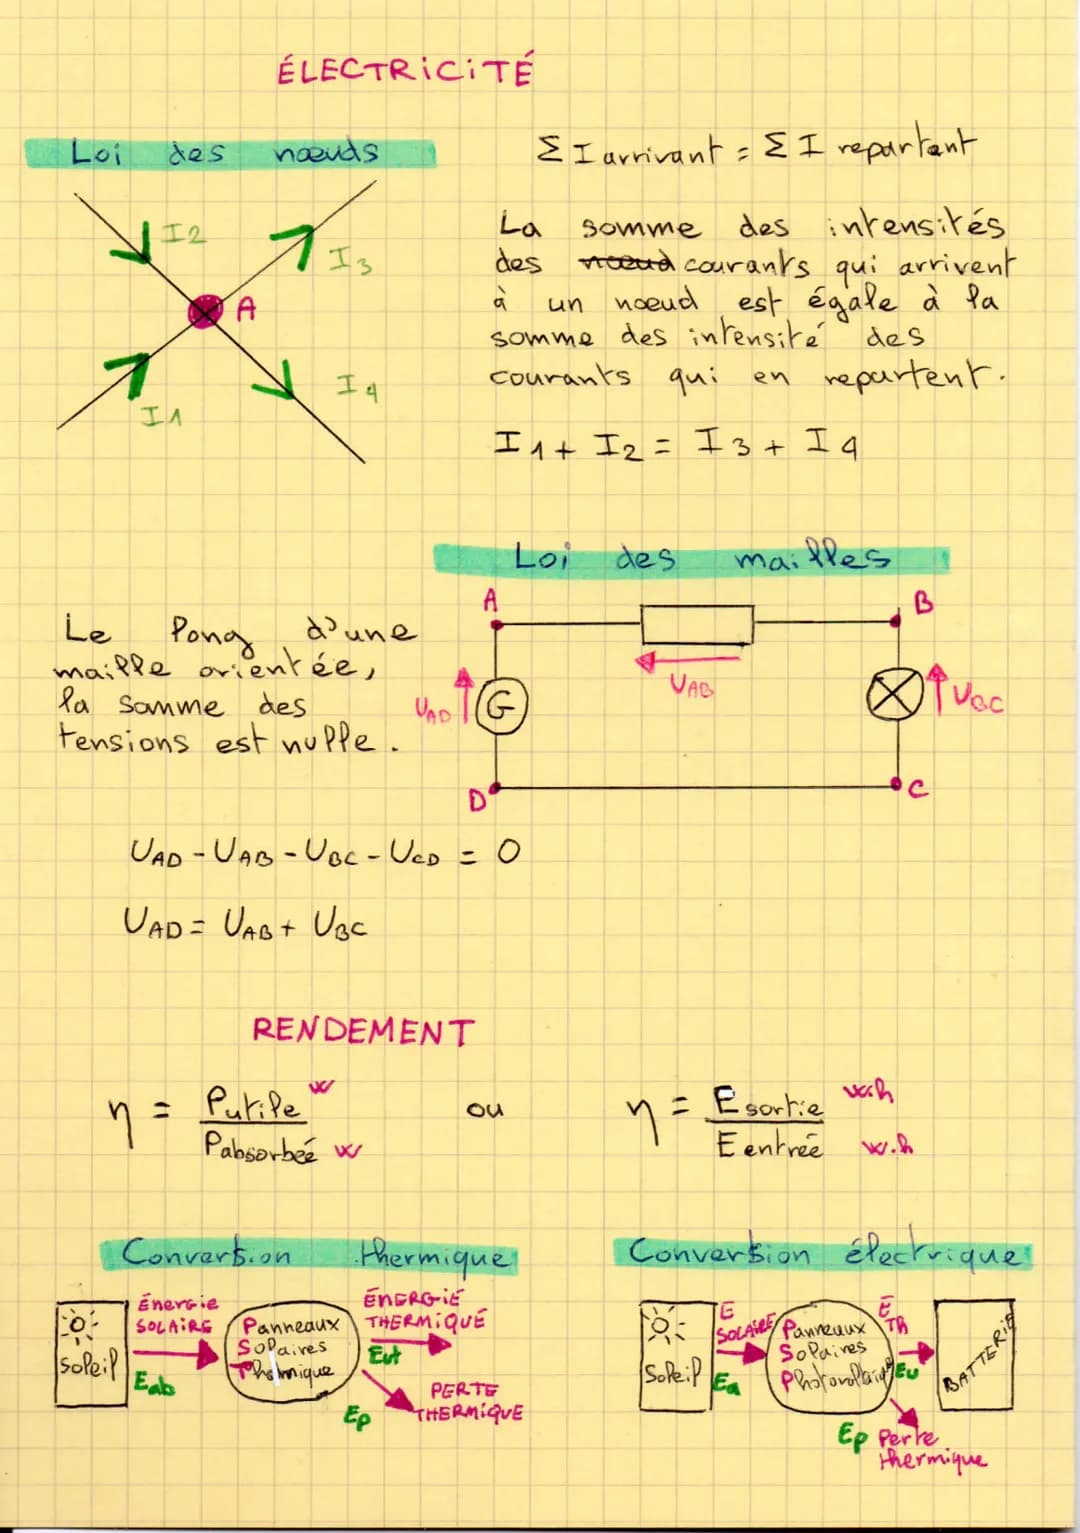 ÉLECTRICITÉ
Loi des nœuds
Σ I arrivant = Σ I repartant
I2
I3
A
I1
I4
La somme des intensités
des nœud courants qui arrivent
à un nœud est égale à la
somme des intensité des
courants qui en repartent.
I1 + I2 = I3 + I4
Loi des mailles
Le long d'une
maille orientée,
la somme des
tensions est nulle.
A
B
UAB
UAD
G
UBC
D
C
UAD - UAB - UBC - UCD = 0
UAD = UAB + UBC
RENDEMENT
η = Putile W
Pabsorbée W
ou
η = E sortie W.h
E entrée W.h
Conversion thermique
Soleil
Énergie
SOLAIRE
Eab
Panneaux
Solaires
Thermique
ÉNERGIE
THERMIQUE
Eut
PERTE
THERMIQUE
Ep
Conversion électrique
Soleil
E
SOLAIRE
Ea
Panneaux
Solaires
Photovoltaique
E
Th
Eu
BATTERIE
Ep Perte
thermique